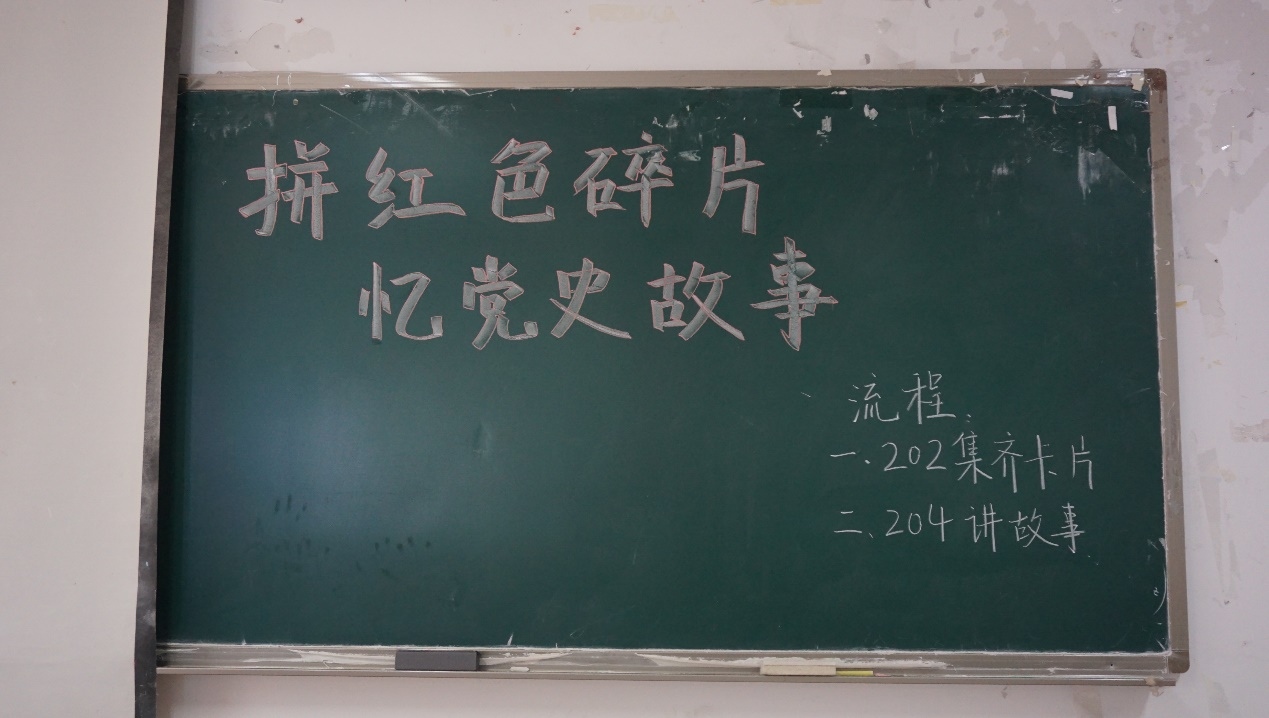 拼红色碎片
忆党史故事
流程:
一、202集齐卡片
二、204讲故事